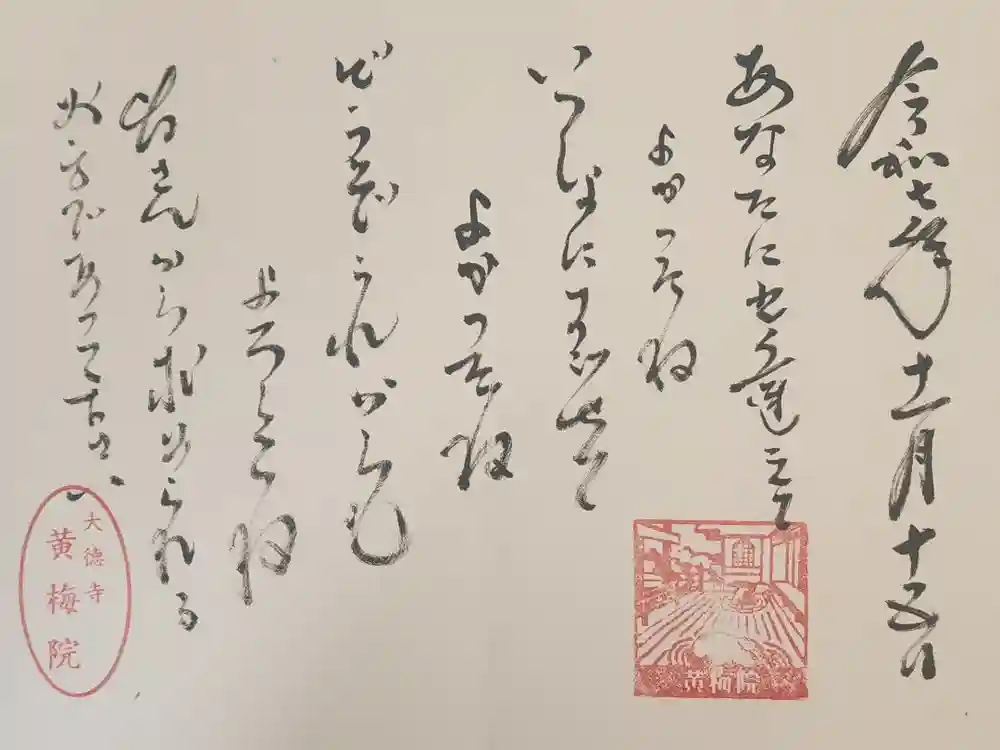 令和七年十一月十五日
あなたにせ又逢えて
よかったね
いっしょに
よかったね
どうぞこれからも
よろしくね
皆さんから求められる
必要であって下さい
黄梅院
大徳寺
黄梅院